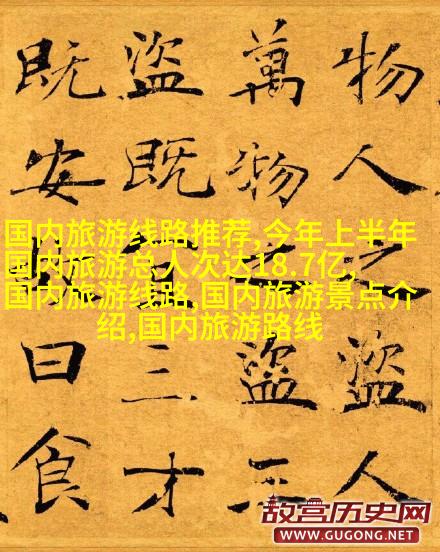 物人之盜人
萬物之盜三
盜既三才
既安故曰食
国内旅游线路推荐,今年上半年
国内旅游总人次达18.7亿,
国内旅游线路,国内旅游景点介
绍,国内旅游路线
故宫历史网
WWW.GUGONG.NET